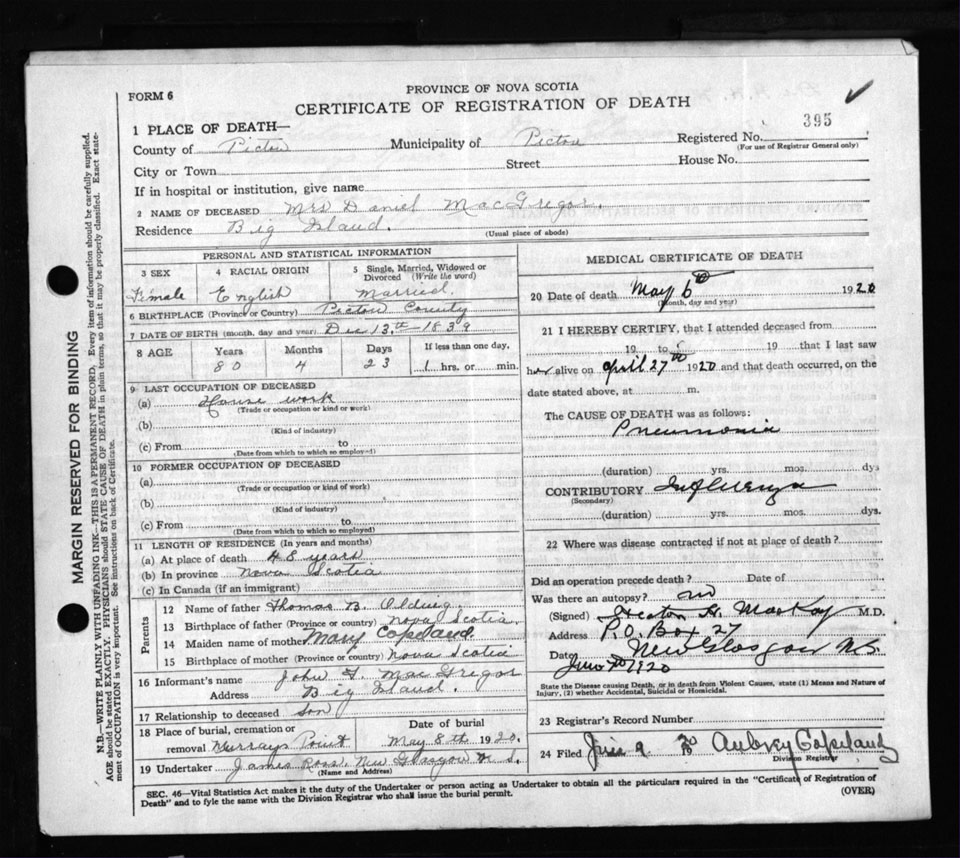 FORM 6
PROVINCE OF NOVA SCOTIA
CERTIFICATE OF REGISTRATION OF DEATH
395
1 PLACE OF DEATH—
Registered No.
(For use of Registrar General only)
County of Pictou Municipality of Pictou
City or Town Street House No.
If in hospital or institution, give name
2 NAME OF DECEASED Mrs Daniel MacGregor.
Residence Big Island.
(Usual place of abode)
PERSONAL AND STATISTICAL INFORMATION
3 SEX 4 RACIAL ORIGIN 5 Single, Married, Widowed or Divorced (Write the word)
Female English Married.
6 BIRTHPLACE (Province or Country) Pictou County
7 DATE OF BIRTH (month, day and year) Dec 13th-1839
8 AGE Years Months Days If less than one day,
80 4 23 hrs. or min.
9 LAST OCCUPATION OF DECEASED
(a) House work
(Trade or occupation or kind or work)
(b)
(Kind of industry)
(c) From to
(Date from which to which so employed)
10 FORMER OCCUPATION OF DECEASED
(a)
(Trade or occupation or kind of work)
(b)
(Kind of industry)
(c) From to
(Date from which to which so employed)
11 LENGTH OF RESIDENCE (In years and months)
(a) At place of death 48 years
(b) In province Nova Scotia
(c) In Canada (if an immigrant)
Parents
12 Name of father Thomas B. Olding.
13 Birthplace of father (Province or country) Nova Scotia.
14 Maiden name of mother Mary Copeland
15 Birthplace of mother (Province or country) Nova Scotia
16 Informant's name John MacGregor
Address Big Island.
17 Relationship to deceased Son
18 Place of burial, cremation or Date of burial
removal Murrays Point May 8th 1920.
19 Undertaker James Ross. New Glasgow N.S.
(Name and Address)
MEDICAL CERTIFICATE OF DEATH
20 Date of death May 6th 1920
(Month, day and year)
21 I HEREBY CERTIFY, that I attended deceased from
19 to 19 that I last saw
her alive on April 27th 1920 and that death occurred, on the
date stated above, at m.
The CAUSE OF DEATH was as follows:
Pneumonia
(duration) yrs. mos. dys
CONTRIBUTORY Influenza
(Secondary)
(duration) yrs. mos. dys.
22 Where was disease contracted if not at place of death?
Did an operation precede death? Date of
Was there an autopsy? no
(Signed) MacKay M.D.
Address P.O. Box 27
Date New Glasgow N.S.
1920
State the Disease causing Death, or in death from Violent Causes, state (1) Means and Nature of
Injury, (2) whether Accidental, Suicidal or Homicidal.
23 Registrar's Record Number
24 Filed June 9 20 Aubrey Copeland
Division Registrar
SEC. 46—Vital Statistics Act makes it the duty of the Undertaker or person acting as Undertaker to obtain all the particulars required in the "Certificate of Registration of
Death" and to fyle the same with the Division Registrar who shall issue the burial permit.
(OVER)
MARGIN RESERVED FOR BINDING
N.B.—WRITE PLAINLY WITH UNFADING INK—THIS IS A PERMANENT RECORD. Every item of information should be carefully supplied.
AGE should be stated EXACTLY. PHYSICIANS should STATE CAUSE OF DEATH in plain terms, so that it may be properly classified. Exact state-
ment of OCCUPATION is very important. See instructions on back of Certificate.